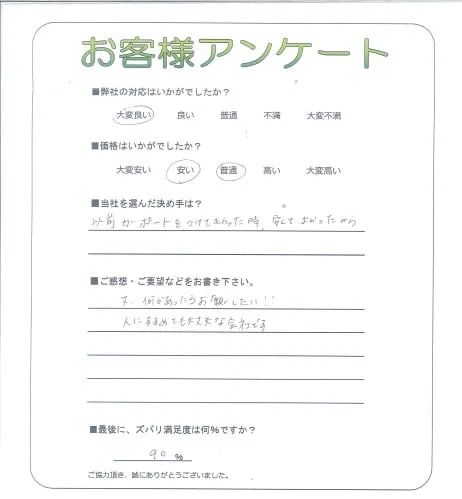 お客様アンケート
■弊社の対応はいかがでしたか?
大変良い 良い 普通 不満 大変不満
■価格はいかがでしたか?
大変安い 安い 普通 高い 大変高い
■当社を選んだ決め手は?
以前カーポートをつけてもらった時、安くてよかったから
■ご感想・ご要望などをお書き下さい。
又、何かあったらお願いしたい!!
人にすすめても大丈夫な会社です
■最後に、ズバリ満足度は何%ですか?
90 %
ご協力頂き、誠にありがとうございました。